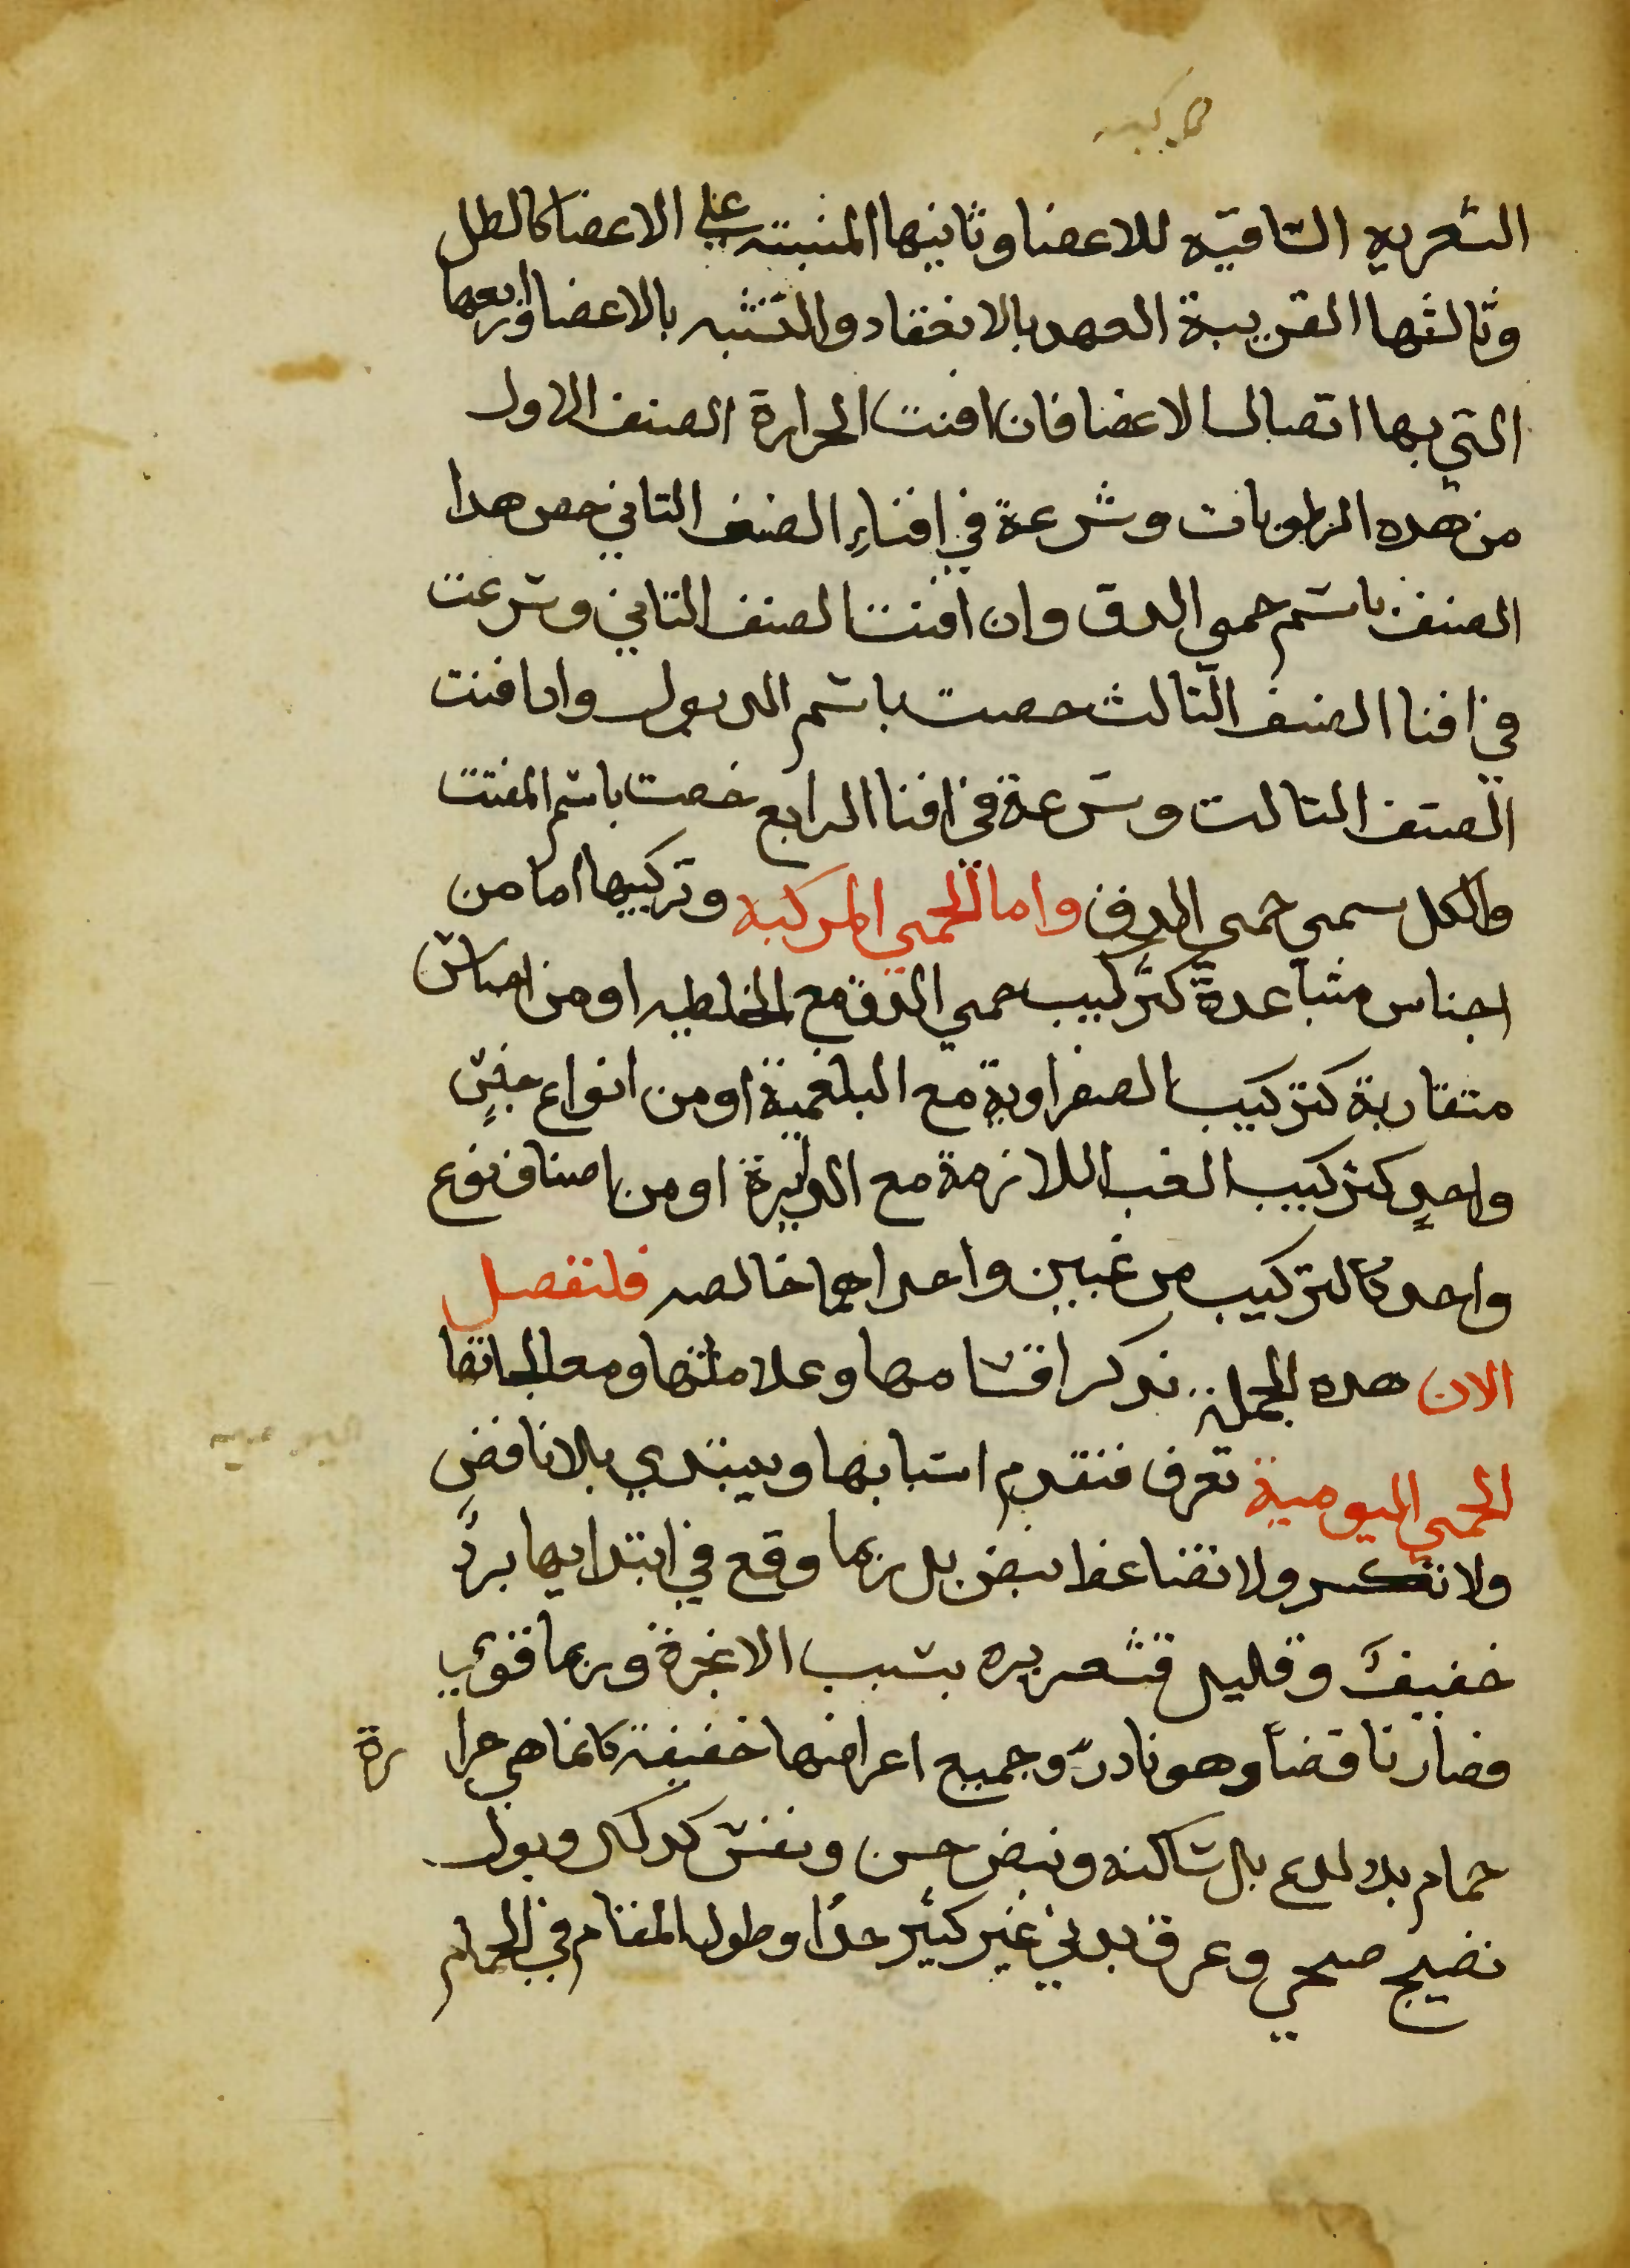 الشعريه الساقيه للاعضا وثانيها المنبته على الاعضا كالطل
وثالثها القريبة العهد بالانعقاد والتشبه بالاعضا ورابعها
التي بها اتصال الاعضا فان افنت الحرارة الصنف الاول
من هده الرطوبات وشرعة في افناءِ الصنف التاني خص هدا
الصنف باسم حمي الدق وان افنت الصنف التاني وشرعت
في افنا الصنف التالث خصت باسم الدبول وادا فنت
الصنف التالت وشرعة في افنا الرابع خصت باسم المفتت
والكل سمي حمي الدق واما الحمي المركبه وتركيبها اما من
اجناس متباعدة كتركيب حمي الدق مع الخلطيه او من اجناس
متقاربة كتركيب الصفراوية مع البلغمية او من انواع جنسٍ
واحدٍ كتركيب الغب اللازمة مع الدايرة او من اصناف نوع
واحد كالتركيب من غبين واحداهما خالصه فلنفصل
الان هده الجملة ندكر اقسامها وعلاماتها ومعالجاتها
الحمي اليومية تعرف فتقدم اسبابها ويبتدي بلا نافض
ولا تكسر ولا تضاغط نبض بل ربما وقع في ابتدايها بردً
خفيفً وقليل قشعريره بسبب الابخرة وربما قوي
فصار نافضاً وهو نادر وجميع اعراضها خفيفة كانما هي حرا رة
حمام بلا لدع بل ساكنه ونبض حسن ونفس كدلك وبول
نضيج صحي وعرق بدني غير كثير جدًا وطول المقام في الحمام